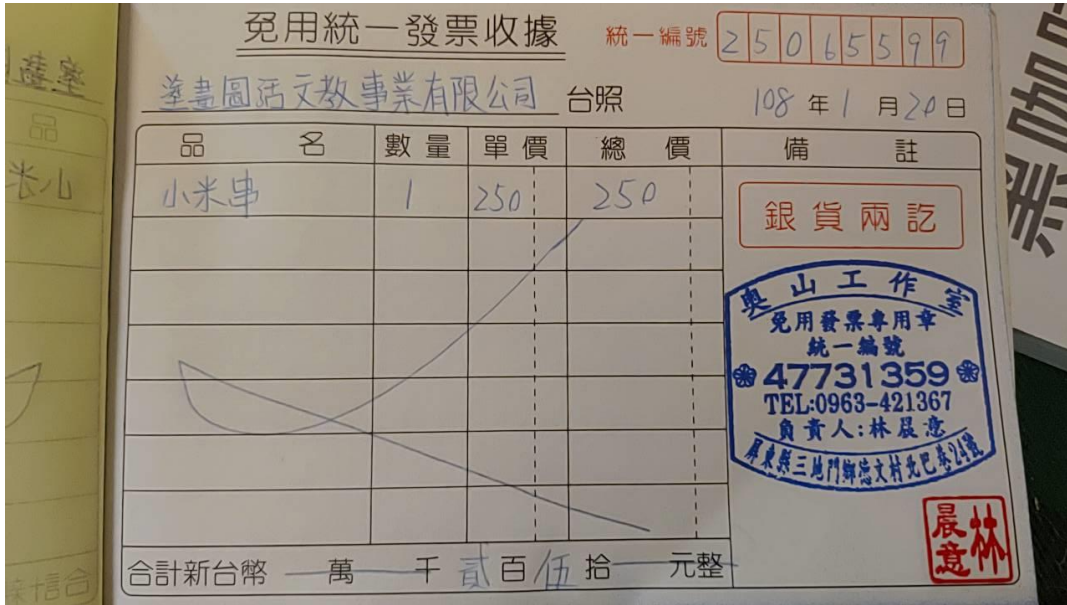 免用統一發票收據
統一編號 25065599
塗書圖活文教事業有限公司 台照
108年1月20日
品名 數量 單價 總價 備註
小米串 1 250 250
銀貨兩訖
奧山工作室
免用發票專用章
統一編號
47731359
TEL:0963-421367
負責人:林晨意
屏東縣三地門鄉德文村北巴巷24號
林晨意
合計新台幣 萬 千 貳百伍拾 元整
品
小米